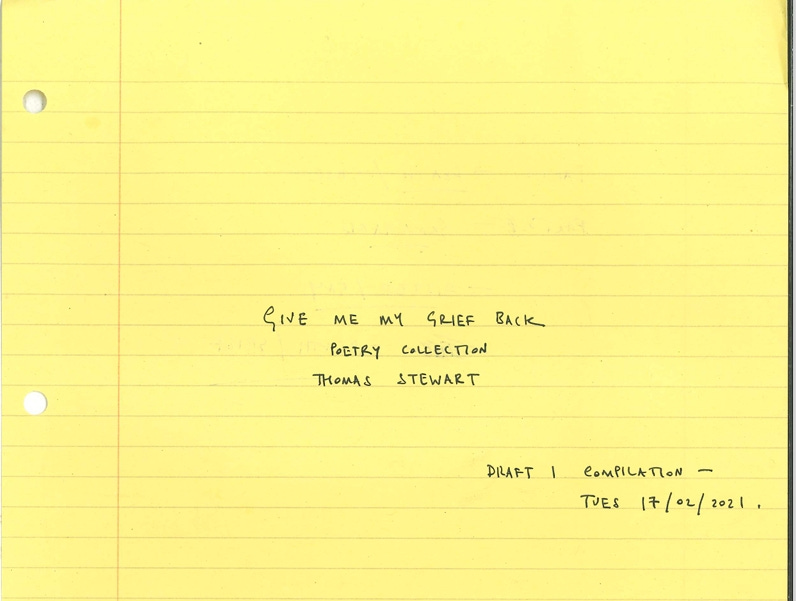 GIVE ME MY GRIEF BACK
POETRY COLLECTION
THOMAS STEWART
DRAFT 1 COMPILATION —
TUES 17/02/2021.